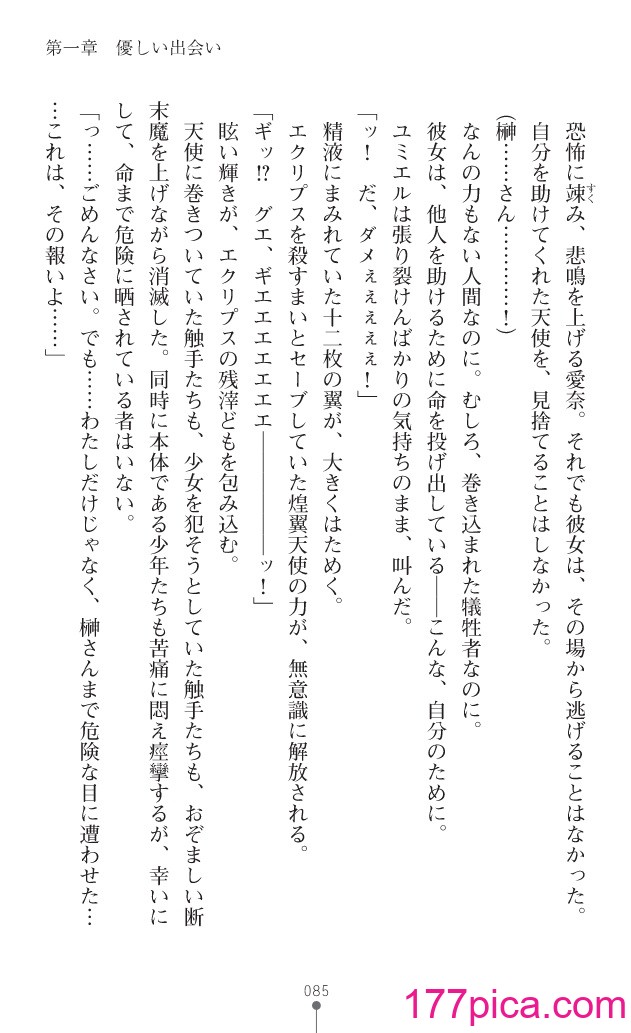 第一章　優しい出会い
恐怖に竦み、悲鳴を上げる愛奈。それでも彼女は、その場から逃げることはなかった。
すく
自分を助けてくれた天使を、見捨てることはしなかった。
(榊……さん…………！)
なんの力もない人間なのに。むしろ、巻き込まれた犠牲者なのに。
彼女は、他人を助けるために命を投げ出している――こんな、自分のために。
ユミエルは張り裂けんばかりの気持ちのまま、叫んだ。
「ッ！　だ、ダメぇぇぇぇぇ！」
精液にまみれていた十二枚の翼が、大きくはためく。
エクリプスを殺すまいとセーブしていた煌翼天使の力が、無意識に解放される。
「ギッ!?　グエ、ギエエエエエエエ――――――ッ！」
眩い輝きが、エクリプスの残滓どもを包み込む。
天使に巻きついていた触手たちも、少女を犯そうとしていた触手たちも、おぞましい断
末魔を上げながら消滅した。同時に本体である少年たちも苦痛に悶え痙攣するが、幸いに
して、命まで危険に晒されている者はいない。
「っ……ごめんなさい。でも……わたしだけじゃなく、榊さんまで危険な目に遭わせた…
…これは、その報いよ……」
085
177pica.com